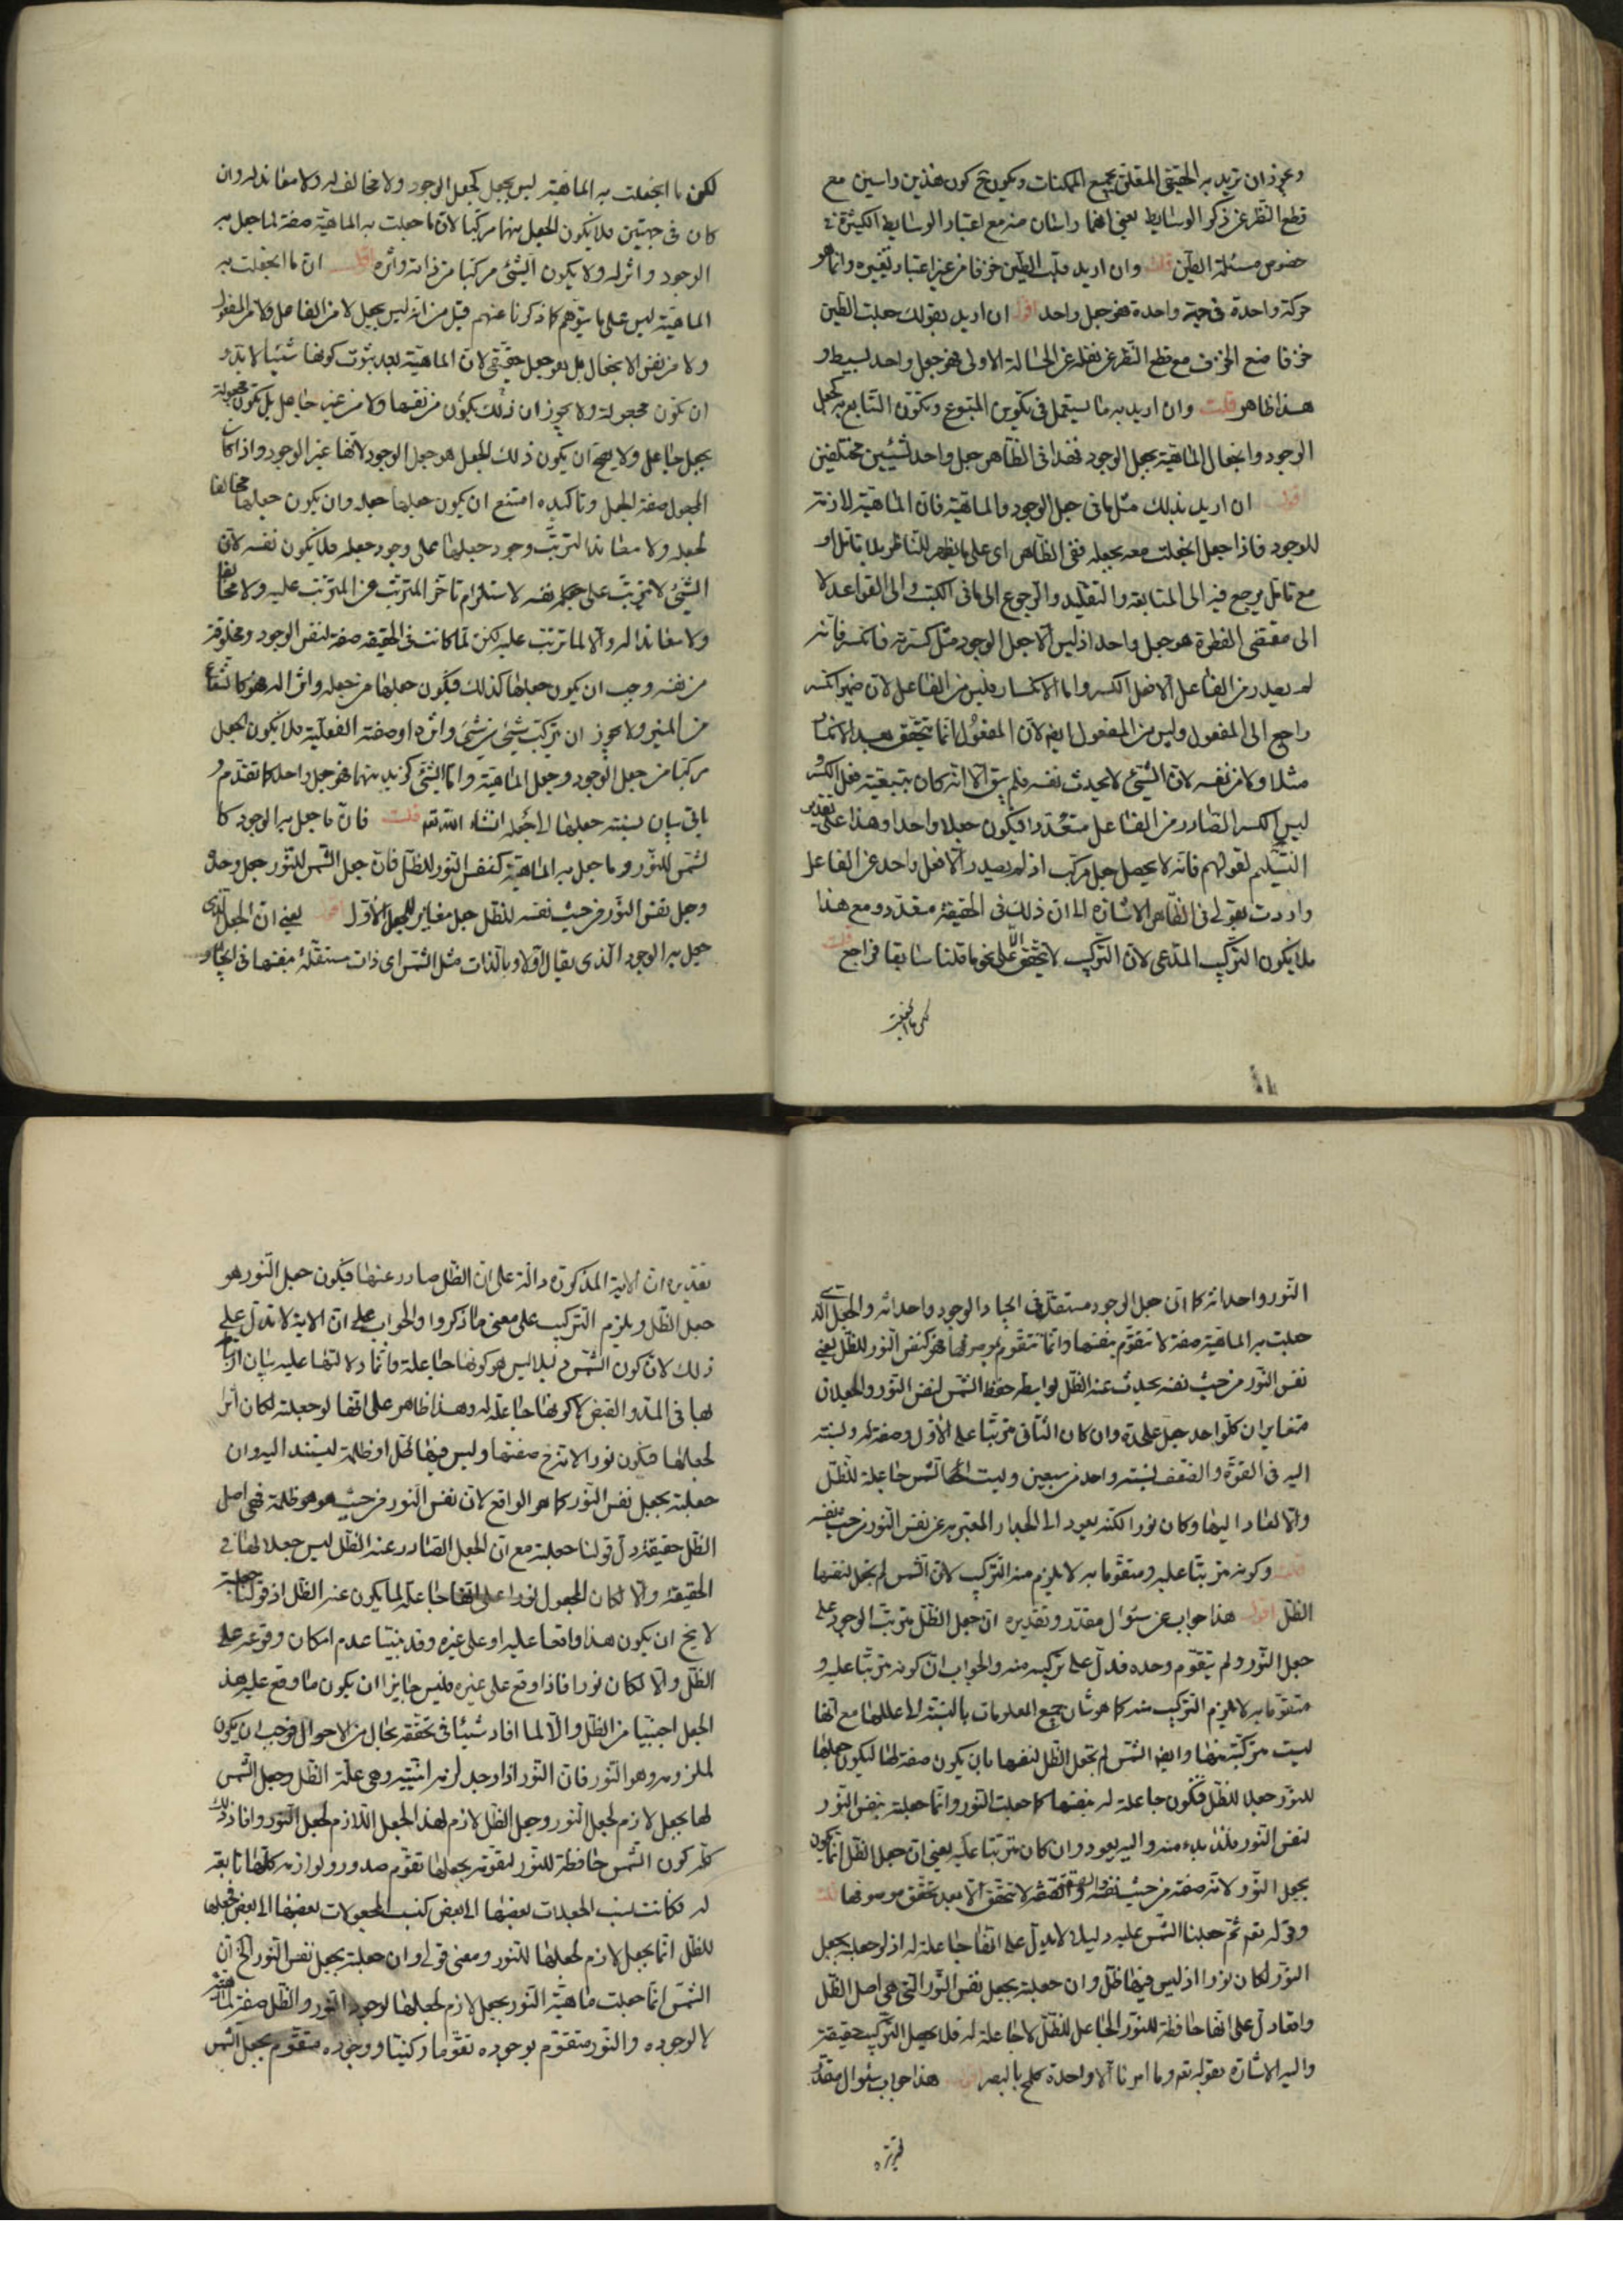 وعزذان تريد به الحقيقي المتعلق بجميع الممكنات ويكون ح كون هذين راسين مع
قطع النظر عن ذكر الوسايط يعني انهما راسان منه مع اعتبار الوسايط الكثيرة في
خصوص مسئلة الطين قلت وان اريد قلب الطين خزفا من غير اعتبار تغييره وانما هو
حركة واحدة في جهة واحدة فهو جعل واحد اقول ان اريد بقولك جعلت الطين
خزفا صنع الخزف مع قطع النظر عن نقله عن الحالة الاولى فهو جعل واحد بسيط و
هذا ظاهر قلت وان اريد به ما يستعمل في تكوين المتبوع وتكون التابع به كجعل
الوجود وانجعال الماهية بجعل الوجود فهذا في الظاهر جعل واحد لشيئين مختلفين
اقول ان اريد بذلك مثل ما في جعل الوجود والماهية فان الماهية لازمة
للوجود فاذا جعل انجعلت معه بجعله ففي الظاهر اى على ما يظهر للناظر بلا تامل او
مع تامل يرجع فيه الى المتابعة والتقليد والرجوع الى ما في الكتب والى القواعد لا
الى مقتضى الفطرة هو جعل واحد اذ ليس الا جعل الوجود مثل كسرته فانكسر فانه
لم يصدر من الفاعل الا فعل الكسر واما الانكسار فليس من الفاعل لان ضمير انكسر
راجع الى المفعول وليس من المفعول ايضا لان المفعول انما يتحقق بعد الانكسار
مثلا ولا من نفسه لان الشيء لا يحدث نفسه فلم يبق الا انه كان بتبعية فعل الكسر و
ليس الكسر الصادر من الفاعل متعددا فيكون جعلا واحدا وهذا على تقدير
التسليم لقولهم فانه لا يحصل جعل مركب اذ لم يصدر الا فعل واحد عن الفاعل
واردت بقولي في الظاهر الاشارة الى ان ذلك في الحقيقة متعدد ومع هذا
فلا يكون التركيب المدعى لان التركيب لا يتحقق الا على نحو ما قلنا سابقا فراجع قلت
لكن ما انجعلت
لكن ما انجعلت به الماهية ليس بجعل كجعل الوجود ولا مخالف له ولا معاند له وان
كان في جهتين فلا يكون الجعل منهما مركبا لان ما جعلت به الماهية صفة لما جعل به
الوجود واثر له ولا يكون الشيء مركبا من ذاته واثره اقول ان ما انجعلت به
الماهية ليس على ما يتوهم كما ذكرنا عنهم قبل من انه ليس بجعل لا من الفاعل ولا من المفعول
ولا من نفس الانجعال بل هو جعل حقيقي لان الماهية بعد ثبوت كونها شيئا لا بد و
ان تكون مجعولة ولا يجوز ان ذلك يكون من نفسها ولا من غير جاعل بل تكون مجعولة
بجعل جاعل ولا يصح ان يكون ذلك الجعل هو جعل الوجود لانها غير الوجود واذا كان
المجعول صفة الجعل وتاكيده امتنع ان يكون جعلها جعله وان يكون جعلها مخالفا
لجعله ولا معاندا لترتب وجود جعلها على وجود جعله فلا يكون نفسه لان
الشيء لا يترتب على جعل نفسه لاستلزام تاخر المترتب عن المترتب عليه ولا مخالفا
ولا معاندا له والا لما ترتب عليه لكن لما كانت في الحقيقة صفة لنفس الوجود ومخلوقة
من نفسه وجب ان يكون جعلها كذلك فيكون جعلها من جعله واثرا له هو كالشعاع
من المنير ولا يجوز ان يتركب شيء من شيء واثره او صفته الفعلية فلا يكون الجعل
مركبا من جعل الوجود وجعل الماهية واما الشيء كزيد منهما فهو جعل واحد كما تقدم و
ياتي بيان نسبة جعلها لاجعله انشاء الله تعه قلت فان ما جعل به الوجود كا
لشمس للنور وما جعل به الماهية كنفس النور للظل فان جعل الشمس للنور جعل وحده
وجعل نفس النور من حيث نفسه للظل جعل مغاير للجعل الاول اقول يعني ان الجعل الذي
جعل به الوجود الذي يقال اولا وبالذات مثل الشمس اى ذات مستقلة بنفسها في ايجاد
النور واحداثه كما ان جعل الوجود مستقل في ايجاد الوجود واحداثه والجعل الذي
جعلت به الماهية صفة لا تتقوم بنفسها وانما تتقوم بموصوفها فهو كنفس النور للظل يعني
نفس النور من حيث نفسه يحدث عنه الظل بواسطة حفظ الشمس لنفس النور والجعلان
متغايران كل واحد جعل على حدة وان كان الثاني مترتبا على الاول وصفة له ونسبته
اليه في القوة والضعف نسبة واحد من سبعين وليست الشمس جاعلة للظل
والا لعاد اليها وكان نورا لكنه يعود الى الجدار المعتبر به عن نفس النور من حيث نفسه
قلت وكونه مترتبا عليه ومتقوما به لا يلزم منه التركيب لان الشمس لم تجعل لنفسها
الظل اقول هذا جواب عن سؤال مقدر وتقديره ان جعل الظل مترتب الوجود على
جعل النور ولم يتقوم وحده فدل على تركيبه منه والجواب ان كونه مترتبا عليه و
متقوما به لا يلزم التركيب منه كما هو شان جميع المعلومات بالنسبة الى عللها مع انها
ليست مركبة منها وايضا الشمس لم تجعل الظل لنفسها بان يكون صفة لها ليكون جعلها
للنور جعلا للظل فتكون جاعلة له بنفسها كما جعلت النور وانما جعلته بنفس النور
لنفس النور فلذا بدء منه واليه يعود وان كان مترتبا عليه يعني ان جعل الظل انما يكون
بجعل النور لانه صفته من حيث نفسه والصفة لا تتحقق الا بعد تحقق موصوفها قلت
وقوله تعه ثم جعلنا الشمس عليه دليلا لا يدل على انها جاعلة له اذ لو جعلته بجعل
النور لكان نورا اذ ليس فيها ظل وان جعلته بجعل نفس النور التي هي اصل الظل
وانما دل على انها حافظة للنور الجاعل للظل لا جاعلة له فلا يحصل التركيب حقيقة
واليه الاشارة بقوله تعه وما امرنا الا واحدة كلمح بالبصر اقول هذا جواب سؤال مقدر
تقديره
تقديره ان الاية المذكورة دالة على ان الظل صادر عنها فيكون جعل النور هو
جعل الظل ويلزم التركيب على معنى ما ذكروا والجواب على ان الاية لا تدل على
ذلك لان كون الشمس دليلا ليس هو كونها جاعلة وانما دلالتها عليه بيان ارتباطه
بها في المد والقبض لا كونها جاعلة له وهذا ظاهر على انها لو جعلته لكان اثرا
لجعلها فيكون نورا لا تدخ صفتها وليس فيها ظل او ظلمة ليستند اليه وان
جعلته بجعل نفس النور كما هو الواقع لان نفس النور من حيث هو هو ظلمة فهي اصل
الظل حقيقة دل قولنا جعلته مع ان الجعل الصادر عنه الظل ليس جعلا لها في
الحقيقة والا لكان المجعول نورا على انها جاعلة لما يكون عنه الظل اذ قولنا جعلته
لا يخ ان يكون هذا واقعا عليه او على غيره وقد بينا عدم امكان وقوعه على
الظل والا لكان نورا فاذا وقع على غيره فليس جايزا ان يكون ما وقع عليه هذ
الجعل اجنبيا من الظل والا لما افاد شيئا في تحققه بحال من الاحوال فوجب ان يكون
لملزومه وهو النور فان النور اذا وجد لزمه انيته وهي علة الظل وجعل الشمس
لها بجعل لازم لجعل النور وجعل الظل لازم لهذا الجعل اللازم لجعل النور وافاد ذلك
كله كون الشمس حافظة للنور لتقومه بجعلها تقوم صدور ولوازمه كلها تابعة
له فكانت نسب الجعلات بعضها الى بعض كنسب المجعولات بعضها الى بعض فجعلها
للظل انما بجعل لازم لجعلها للنور ومعنى قولي وان جعلته بجعل نفس النور الخ ان
الشمس انما جعلت ماهية النور بجعل لازم لجعلها لوجود النور والظل صفة لماهيته
لا لوجوده والنور متقوم بوجوده تقوما ركنيا ووجوده متقوم بجعل الشمس